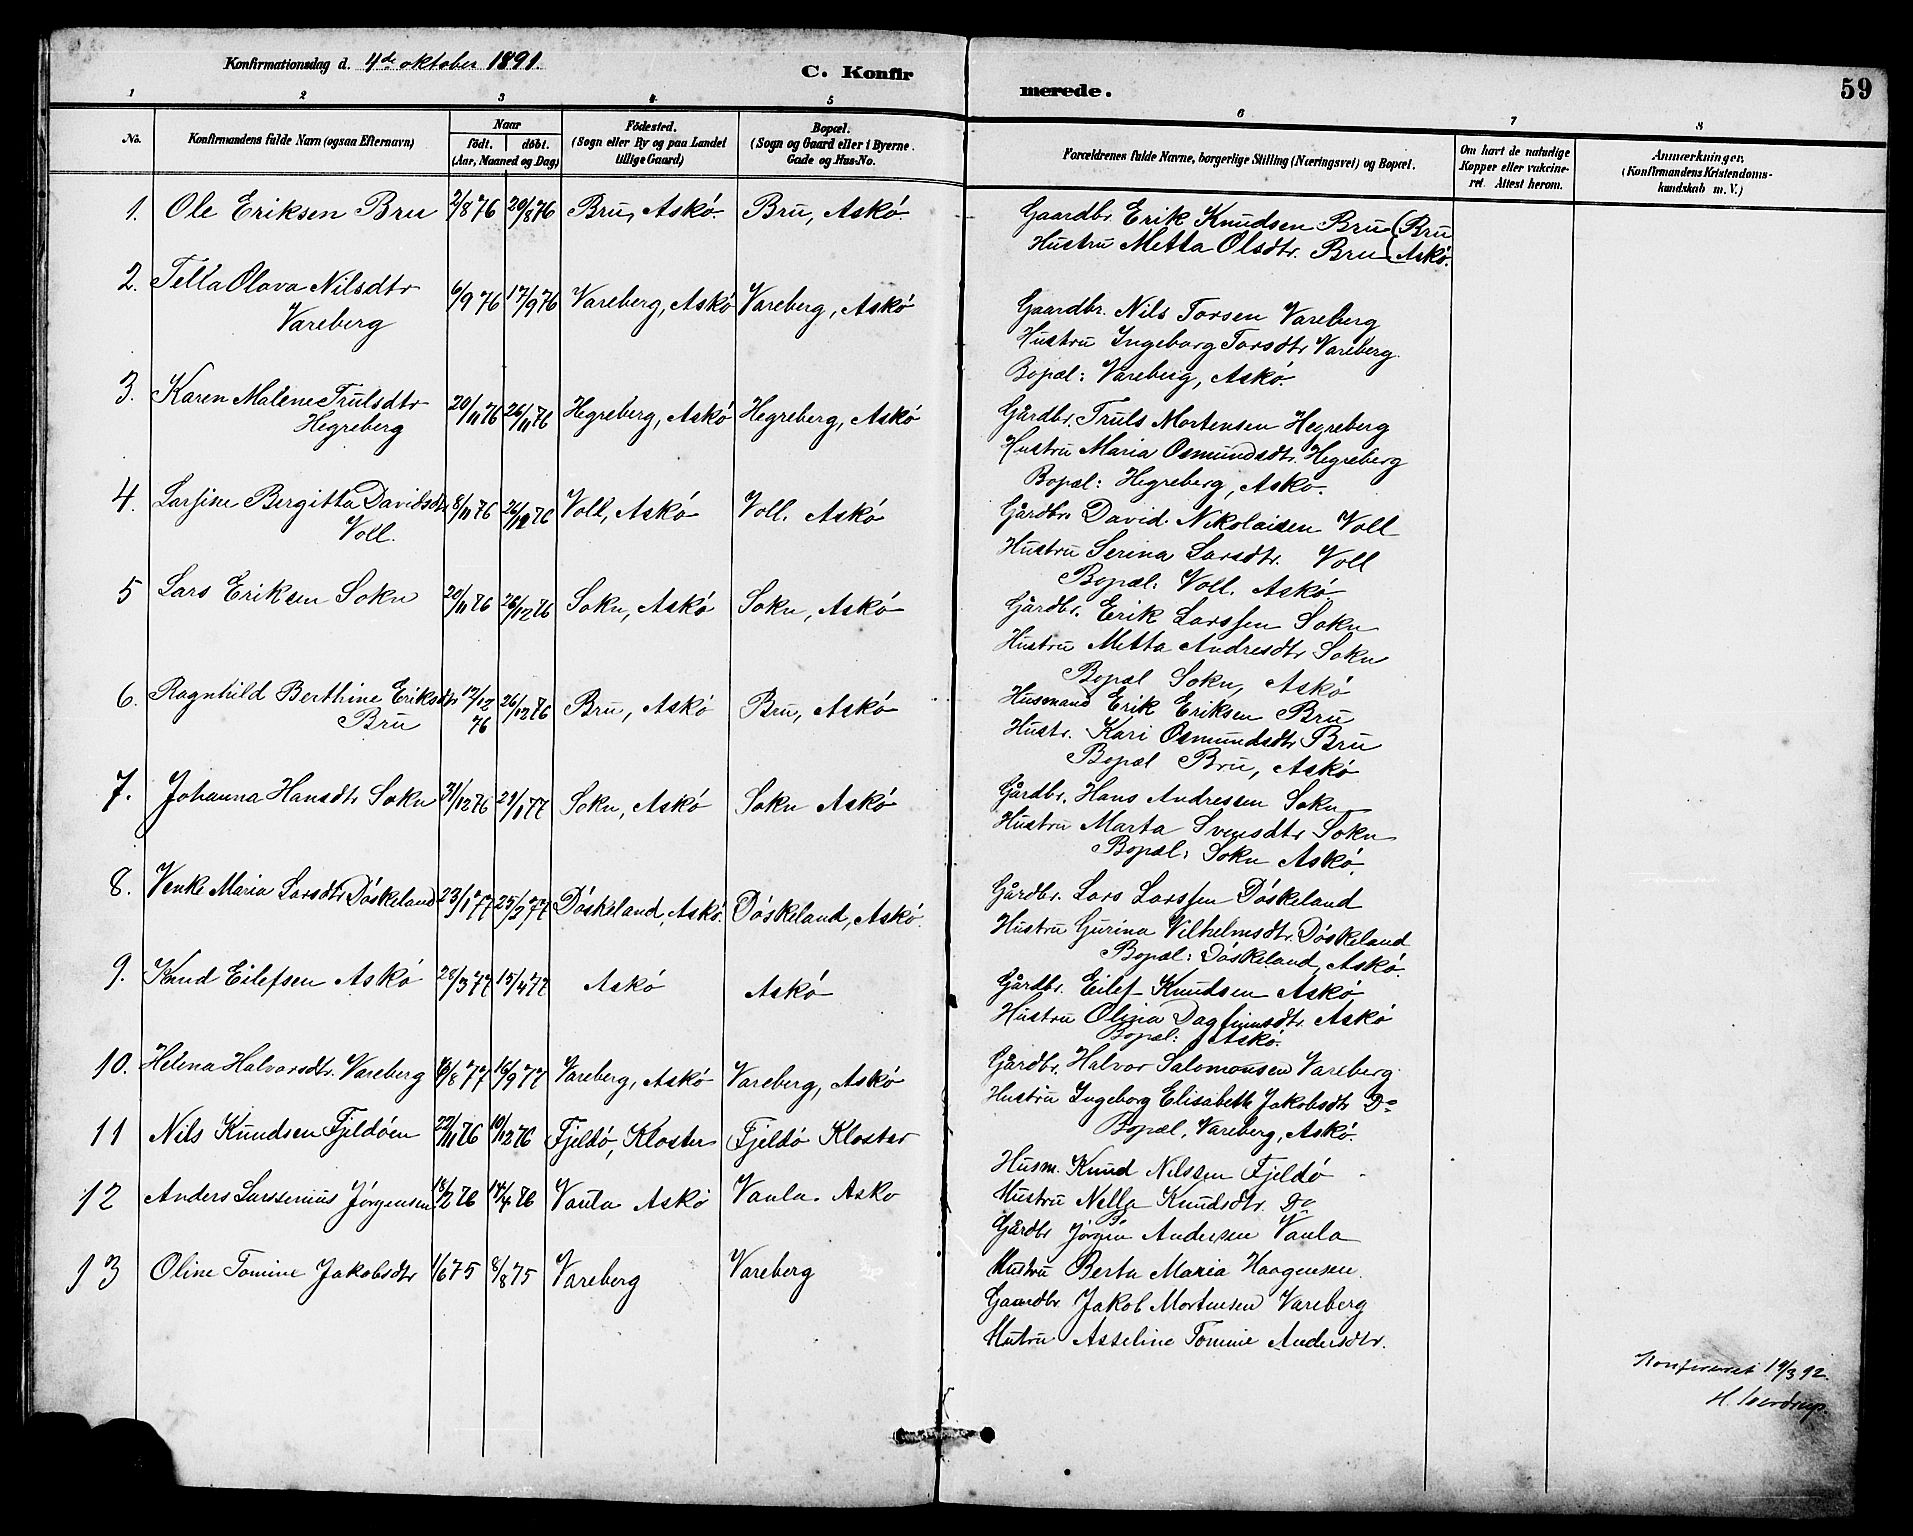 Konfirmationsdag d. 4de oktober 1891.
C. Konfir
merede.
59
1 2 3 4 5 6 7 8
No.
Konfirmandens fulde Navn (ogsaa Efternavn)
Naar
födt. döbt.
(Aar, Maaned og Dag)
Födested.
(Sogn eller By og paa Landet
tillige Gaard)
Bopæl.
(Sogn og Gaard eller i Byerne
Gade og Hus-No.
Forældrenes fulde Navne, borgerlige Stilling (Næringsvei) og Bopæl.
Om havt de naturlige
Kopper eller vakcine-
ret. Attest herom.
Anmærkninger.
(Konfirmandens Kristendoms-
kundskab m. V.)
1. Ole Eriksen Bru 2/8 76 20/8 76 Bru, Askö. Bru, Askö.
Gaardbr. Erik Knudsen Bru (Bru
Hustru Metta Olsdtr. Bru (Askö.
2. Tella Olava Nilsdtr
Vareberg
6/9 76 17/9 76 Vareberg, Askö Vareberg, Askö
Gaardbr. Nils Torsen Vareberg
Hustru Ingeborg Torsdtr Vareberg.
Bopæl: Vareberg, Askö.
3. Karen Malene Trulsdtr
Hegreberg
20/11 76 26/11 76 Hegreberg, Askö Hegreberg, Askö
Gårdbr. Truls Mortensen Hegreberg
Hustru Maria Osmundsdtr. Hegreberg
Bopæl: Hegreberg, Askö.
4. Larsine Bergitta Davidsdtr
Voll.
8/11 76 26/12 76 Voll, Askö Voll. Askö
Gårdbr. David Nikolaisen Voll
Hustru Serina Larsdtr. Voll
Bopæl: Voll. Askö.
5 Lars Eriksen Sokn 20/11 76 26/12 76 Sokn, Askö Sokn, Askö
Gårdbr. Erik Larssen Sokn
Hustru Metta Andresdtr Sokn
Bopæl Sokn, Askö
6. Ragnhild Berthine Eriksdtr
Bru
12/12 76 26/12 76 Bru, Askö Bru, Askö
Husmand Erik Eriksen Bru
Hustr. Kari Osmundsdtr Bru
Bopæl Bru, Askö
7. Johanna Hansdtr Sokn 31/12 76 21/1 77 Sokn, Askö Sokn Askö
Gårdbr. Hans Andressen Sokn
Hustru Marta Svensdtr Sokn
Bopæl: Sokn Askö.
8. Venke Maria Larsdtr Döskeland 23/1 77 25/2 77 Döskeland, Askö. Döskeland, Askö.
Gårdbr. Lars Larssen Döskeland
Hustru Gurina Vilhelmsdtr. Döskeland
Bopæl: Döskeland, Askö.
9. Knud Eilefsen Askö 28/3 77 15/4 77 Askö Askö
Gårdbr. Eilef Knudsen Askö
Hustru Olina Dagfinnsdtr. Askö
Bopæl: Askö.
10. Helena Halvorsdtr. Vareberg 6/8 77 16/9 77 Vareberg, Askö Vareberg, Askö
Gårdbr. Halvor Salomonsen Vareberg
Hustru Ingeborg Elisabeth Jakobsdtr Do
Bopæl, Vareberg, Askö.
11 Nils Knudsen Fjeldöen 22/11 76 10/12 76 Fjeldö, Kloster Fjeldö Kloster
Husm. Knud Nilssen Fjeldö
Hustru Nella Knudsdtr. Do
12 Anders Larssenius Jörgensen 18/2 76 14/4 76 Vaula Askö Vaula. Askö
Gårdbr Jörgen Andersen Vaula
Hustru Berta Maria Haagensen
13 Oline Tomine Jakobsdtr 1/6 75 8/8 75 Vareberg Vareberg
Gaardbr Jakob Mortensen Vareberg
Hutru Asseline Tomine Andersdtr.
Konfereret 19/3 92.